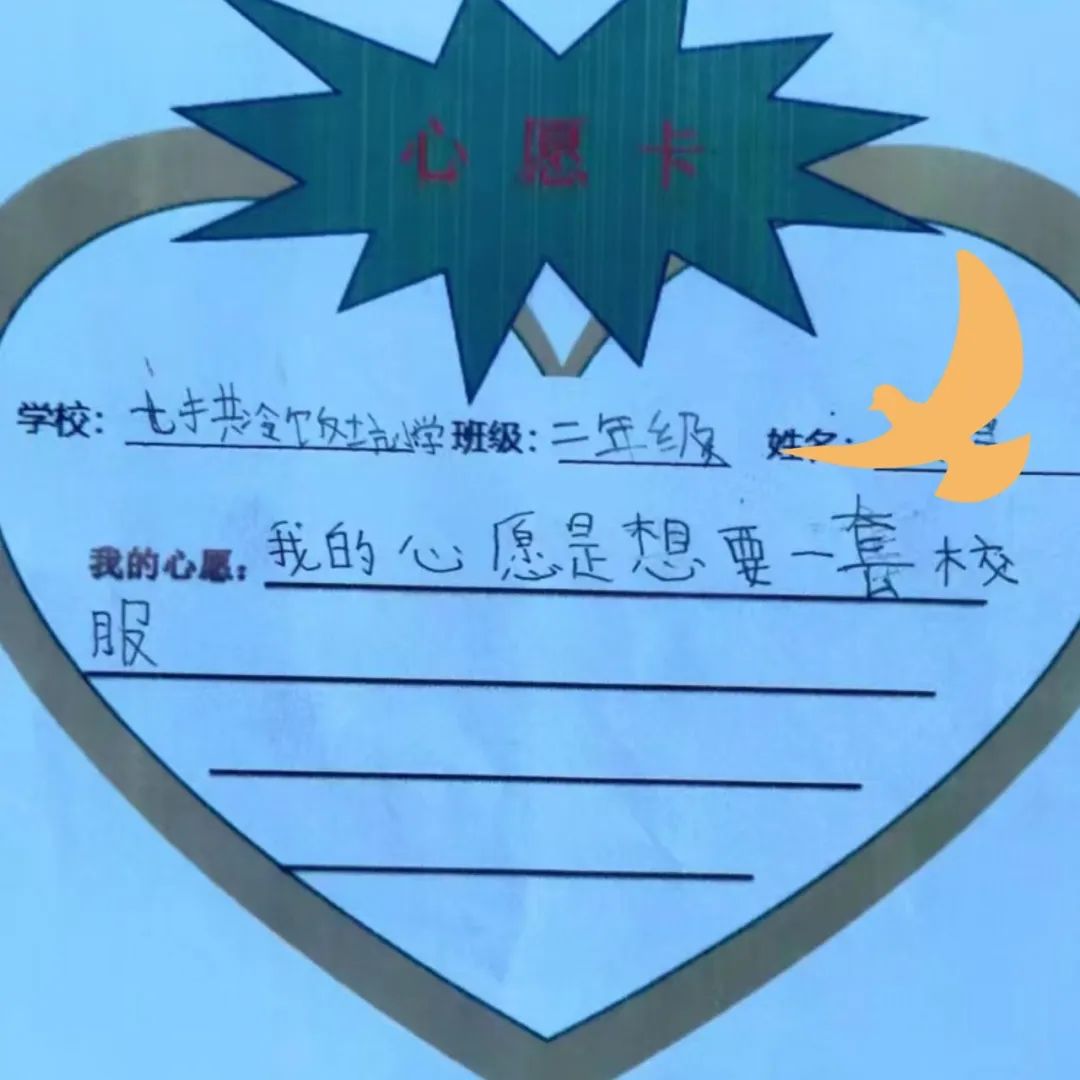 心愿卡
学校：七手拱冷饮坑小学 班级：二年级 姓名：
我的心愿：我的心愿是想要一套校
服